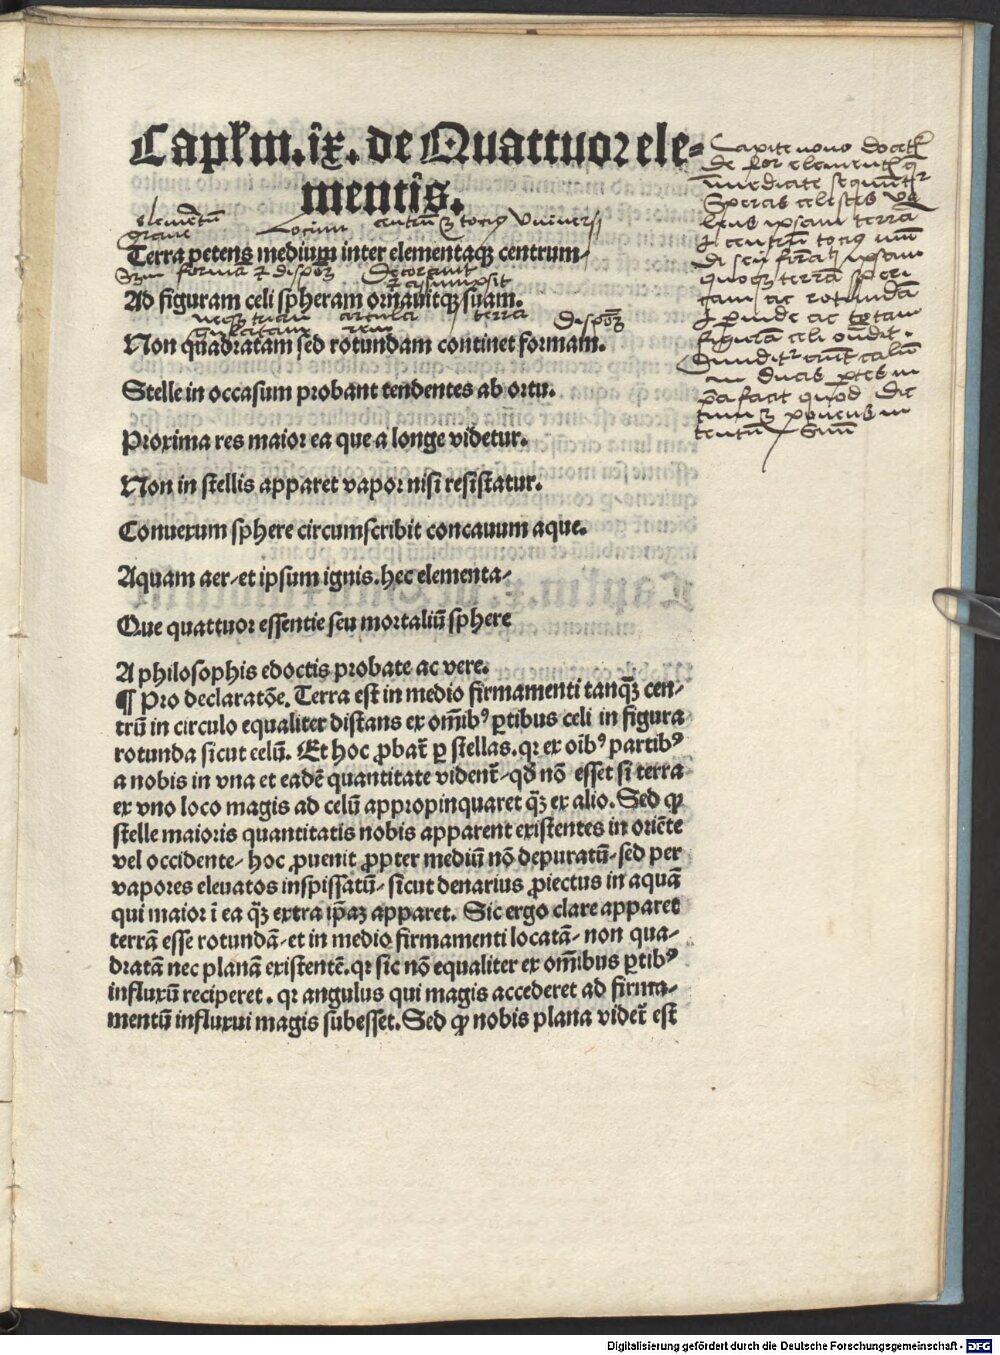 Caplm.ix. de Quattuor ele-
mentis.
elementũ
grave Locum centrũ toci⁹ Univer
Terra petens medium inter elementaqȝ centrum-
forma et dispoȝ Decoravit
Ad figuram celi spheram ornauitqȝ suam.
terra dispoȝ
Non quadratam sed rotundam continet formam.
Stelle in occasum probant tendentes ab ortu.
Proxima res maior ea que a longe videtur.
Non in stellis apparet vapor nisi resistatur.
Conuexum sphere circumscribit concauum aque.
Aquam aer-et ipsum ignis.hec elementa-
Que quattuor essentie seu mortaliũ sphere
A philosophis edoctis probate ac vere.
¶ Pro declaratõe. Terra est in medio firmamenti tanqȝ cen-
trũ in circulo equaliter distans ex om̃ib⁹ ꝑtibus celi in figura
rotunda sicut celũ. Et hoc ꝓbat̃ ꝑ stellas.qꝛ ex oĩb⁹ partib⁹
a nobis in vna et eadẽ quantitate vident̃-qđ nõ esset si terra
ex vno loco magis ad celũ appropinquaret q̃ȝ ex alio. Sed ꝙ
stelle maioris quantitatis nobis apparent existentes in oriẽte
vel occidente-hoc ꝓuenit ꝓpter mediũ nõ depuratũ-sed per
vapores eleuatos inspissatũ-sicut denarius ꝓiectus in aquã
qui maior ĩ ea q̃ȝ extra ip̃aȝ apparet. Sic ergo clare apparet
terrã esse rotundã-et in medio firmamenti locatã-non qua-
dratã nec planã existentẽ.qꝛ sic nõ equaliter ex om̃ibus ꝑtib⁹
influxũ reciperet. qꝛ angulus qui magis accederet ad firma-
mentũ influxui magis subesset. Sed ꝙ nobis plana videt̃ est
Capite nono docet
de
immediate
Speras celestes
ipsam terra
centrũ toci⁹
ipsam
terrã speri
cam ac rotundã
ac totam
figurã celi
celũ
in duas ꝑtes
facit quod dic
tum
Digitalisierung gefördert durch die Deutsche Forschungsgemeinschaft - DFG